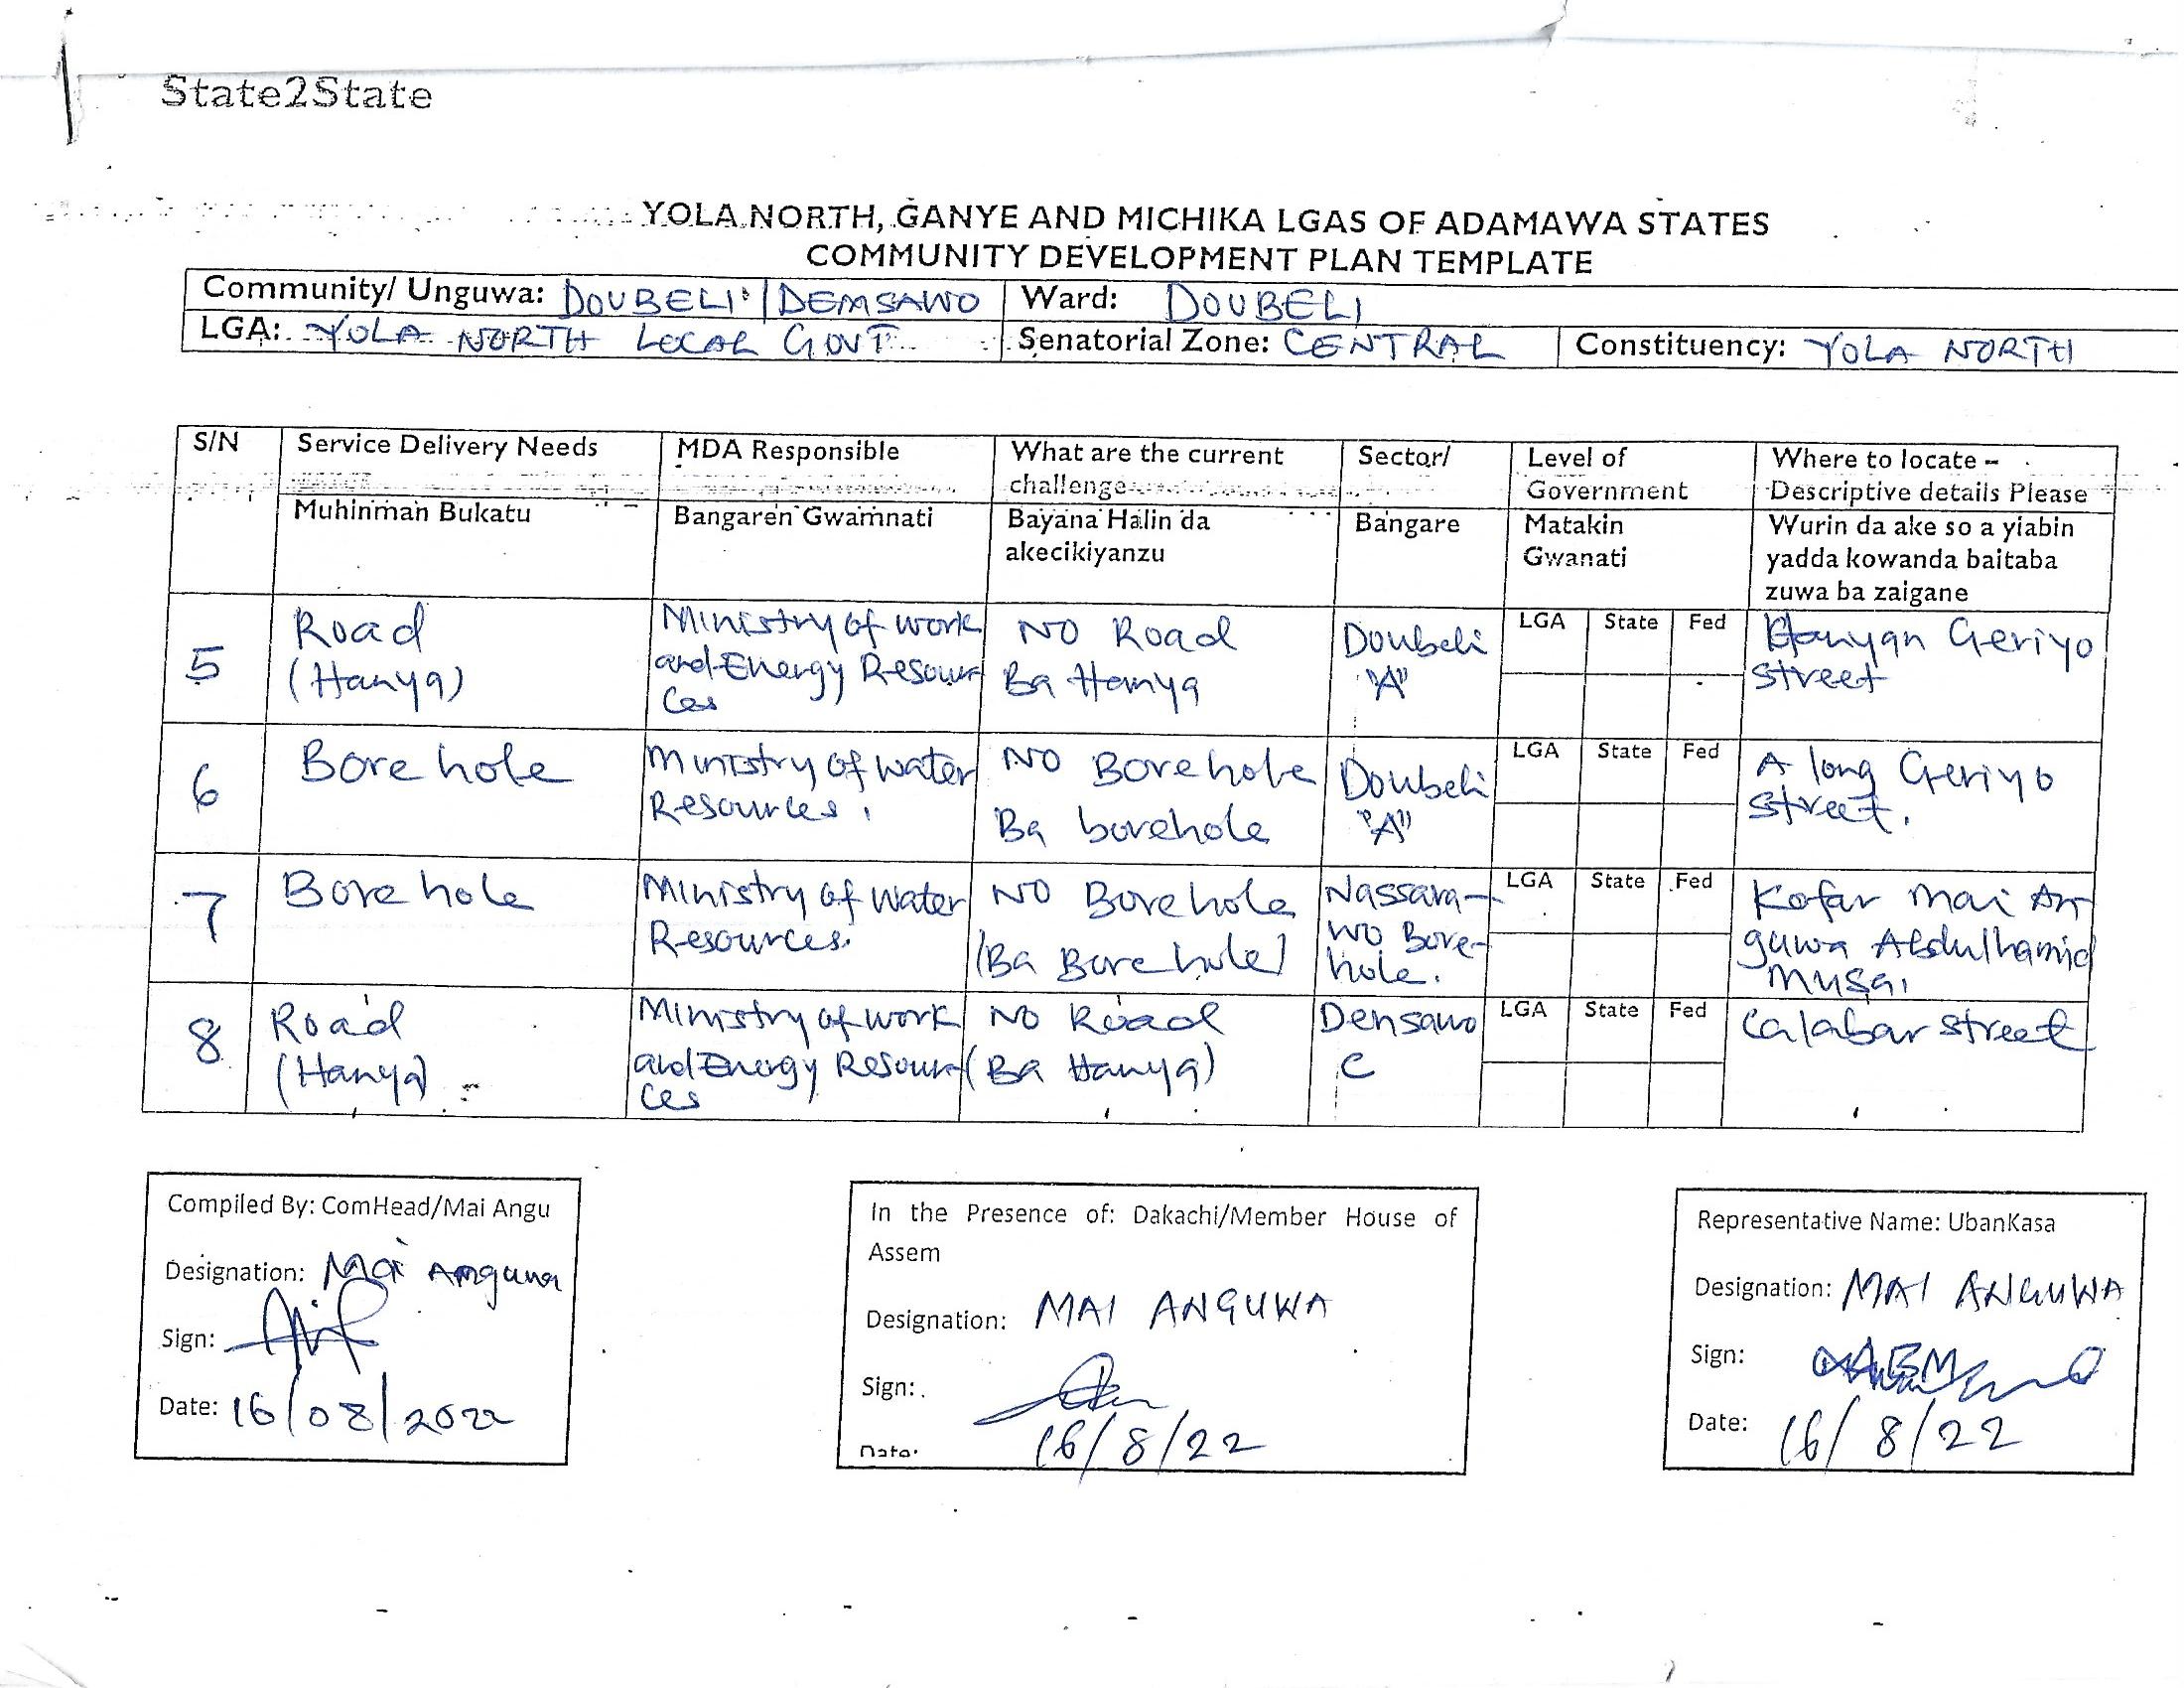 State2State
YOLA NORTH, GANYE AND MICHIKA LGAS OF ADAMAWA STATES
COMMUNITY DEVELOPMENT PLAN TEMPLATE
Community/ Unguwa: DOUBELI / DEMSAWO Ward: DOUBELI
LGA: YOLA NORTH LOCAL GOVT Senatorial Zone: CENTRAL Constituency: YOLA NORTH
S/N Service Delivery Needs MDA Responsible What are the current challenge Sector/ Level of Government Where to locate – Descriptive details Please
Muhinman Bukatu Bangaren Gwamnati Bayana Halin da akecikiyanzu Bangare Matakin Gwanati Wurin da ake so a yiabin yadda kowanda baitaba zuwa ba zaigane
5 Road (Hanya) Ministry of work and Energy Resources NO Road Ba Hanya Doubeli "A" LGA State Fed Hanyan Geriyo street
6 Bore hole Ministry of water Resources. NO Borehole Ba borehole Doubeli "A" LGA State Fed A long Geriyo street.
7 Bore hole Ministry of water Resources. NO Bore hole (Ba Bore hole) Nassara-wo Bore-hole. LGA State Fed Kofar Mai An guwa Abdulhamid Musa.
8 Road (Hanya) Ministry of work and Energy Resources NO Road (Ba Hanya) Densawo C LGA State Fed Calabar street
Compiled By: ComHead/Mai Angu
Designation: Mai Anguwa
Sign:
Date: 16/08/2022
In the Presence of: Dakachi/Member House of
Assem
Designation: MAI ANGUWA
Sign:
Date: 16/8/22
Representative Name: UbanKasa
Designation: MAI ANGUWA
Sign:
Date: 16/8/22